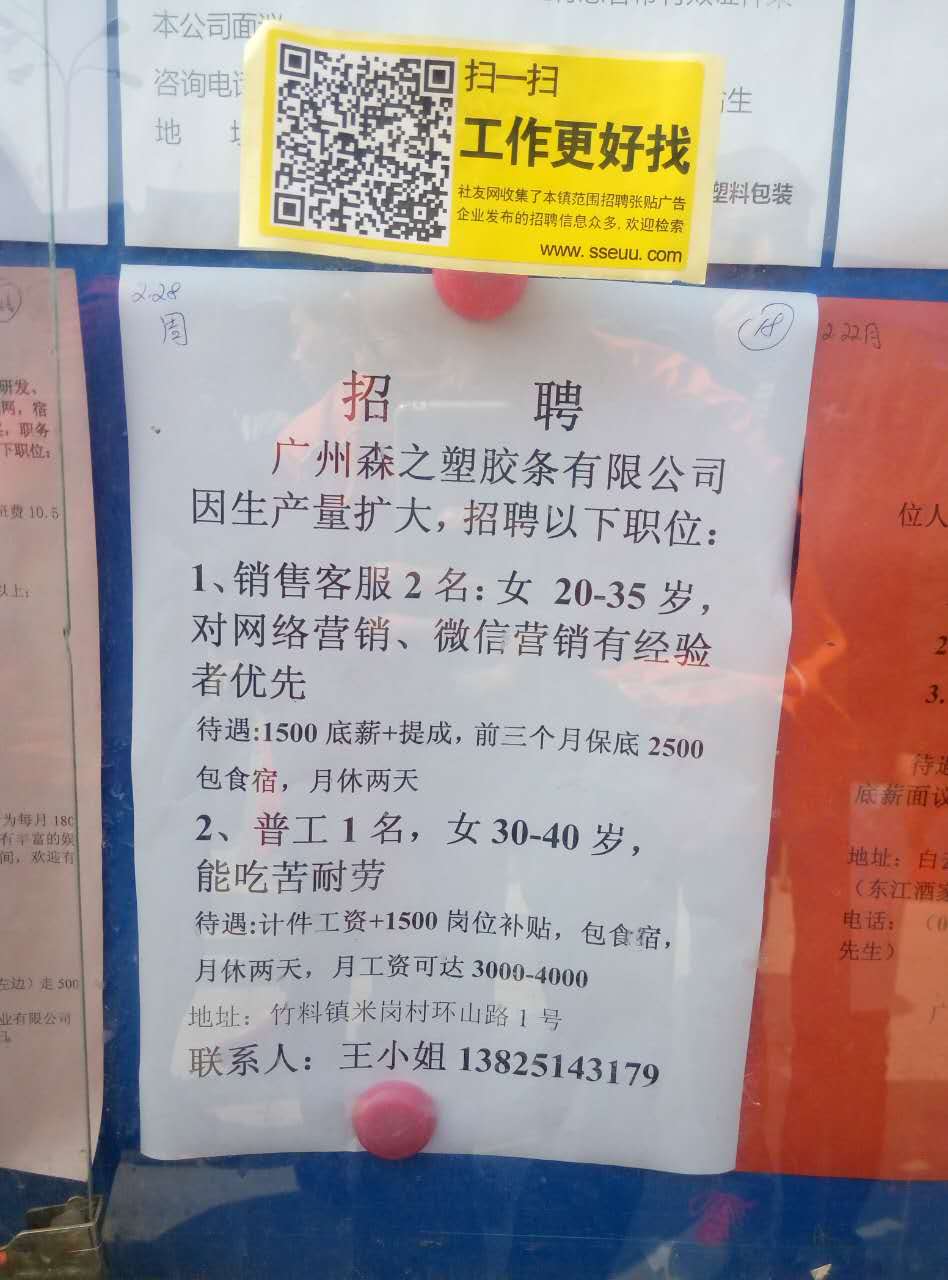 本公司面议
咨询电话
地
生
塑料包装
扫一扫
工作更好找
社友网收集了本镇范围招聘张贴广告
企业发布的招聘信息众多,欢迎检索
www.sseuu.com
2.28
周
18
招 聘
广州森之塑胶条有限公司
因生产量扩大，招聘以下职位：
1、销售客服 2 名：女 20-35 岁，
对网络营销、微信营销有经验
者优先
待遇:1500 底薪+提成，前三个月保底 2500
包食宿，月休两天
2、普工 1 名，女 30-40 岁，
能吃苦耐劳
待遇:计件工资+1500 岗位补贴，包食宿，
月休两天，月工资可达 3000-4000
地址：竹料镇米岗村环山路 1 号
联系人：王小姐 13825143179
研发、
网，宿
，职务
下职位：
费 10.5
以上；
为每月 180
有丰富的娱
间，欢迎有
左边）走 500
业有限公司
2.22月
位人
2
3.
待遇
底薪面议
地址：白云
（东江酒家
电话：（0
先生）